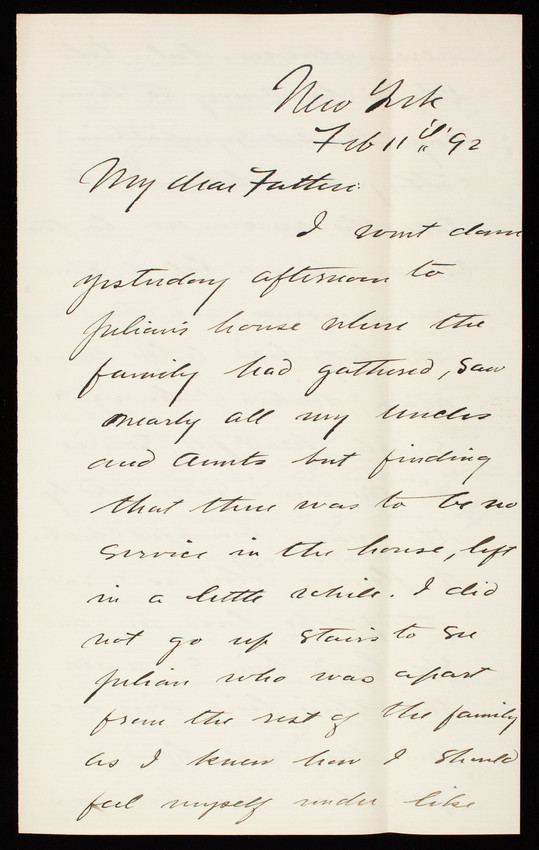 New York
Feb 11th 92
My dear Father:
I went down
yesterday afternoon to
Julian's house where the
family had gathered, saw
nearly all my Uncles
and Aunts but finding
that there was to be no
service in the house, left
in a little while. I did
not go up stairs to see
Julian who was apart
from the rest of the family
as I knew how I should
feel myself under like